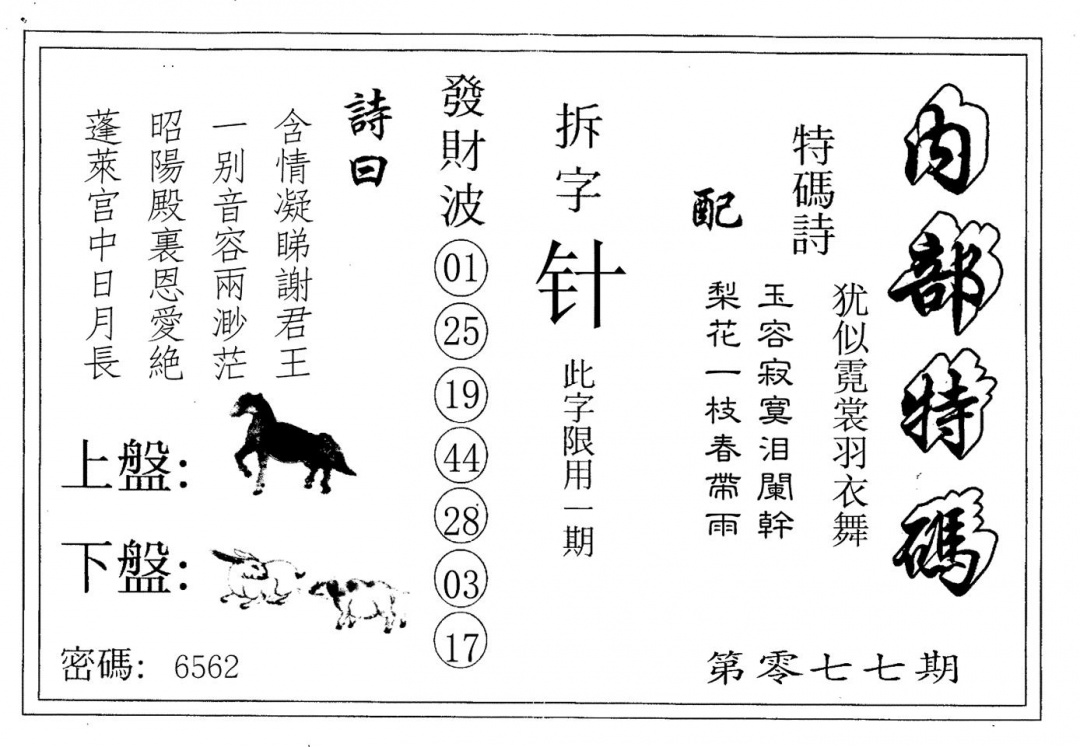 內部特碼
特碼詩
猶似霓裳羽衣舞
配
玉容寂寞泪闌幹
梨花一枝春帶雨
第零七七期
拆字
针
此字限用一期
發財波
01
25
19
44
28
03
17
詩曰
含情凝睇謝君王
一别音容兩渺茫
昭陽殿裏恩愛絶
蓬萊宮中日月長
上盤：
下盤：
密碼： 6562